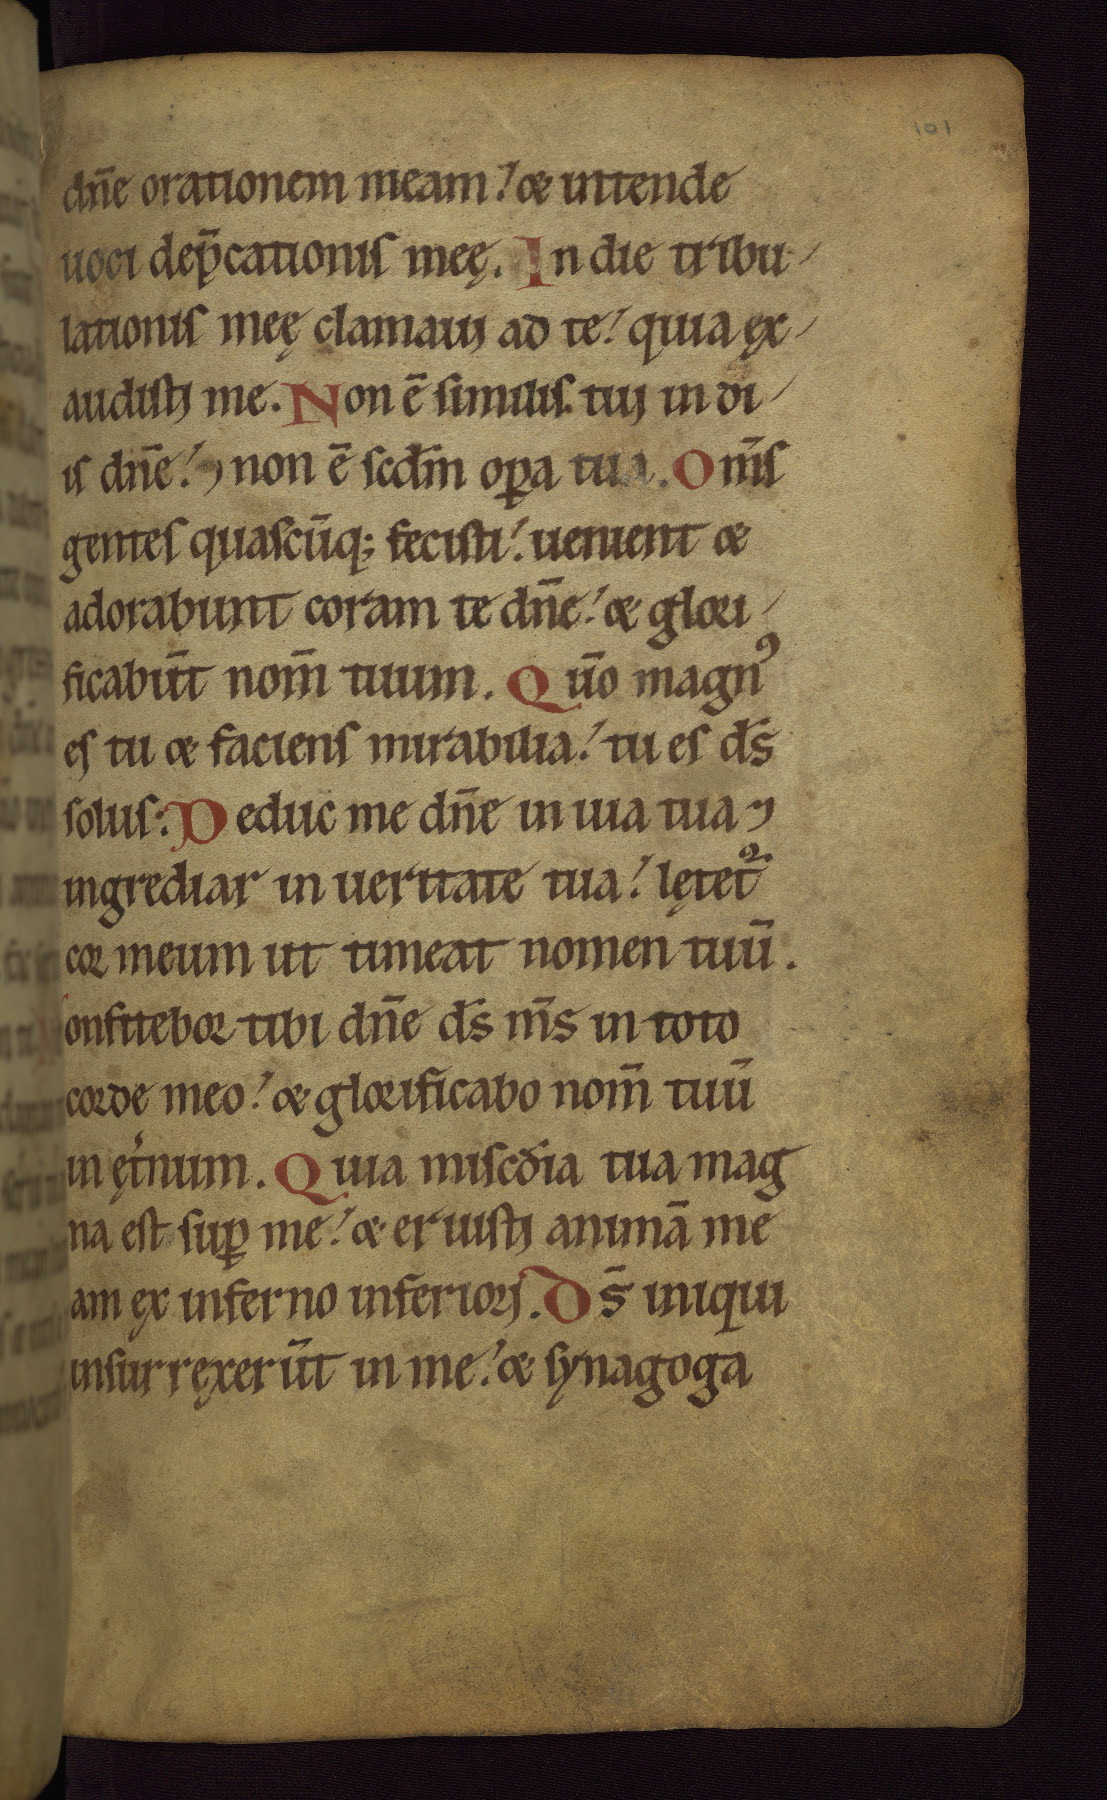 101
dn̄e orationem meam. et intende
uoci dep̄cationis meę. In die tribu-
lationis meę clamauj ad te. quia ex-
audistj me. Non ē similis tuj in di-
is dn̄e. ⁊ non ē scdm̄ oꝑa tua. Om̄s
gentes quascūq; fecisti. uenient et
adorabunt coram te dn̄e. et glori-
ficabūt nom̄ tuum. Qūo magnꝰ
es tu et faciens mirabilia. tu es ds̄
solus. Deduc me dn̄e in uia tua ⁊
ingrediar in ueritate tua. lętet᷑
cor meum ut timeat nomen tuū.
onfitebor tibi dn̄e ds̄ ms̄ in toto
corde meo. et glorificabo nom̄ tuū
in ęt̓num. Quia misc̄dia tua mag
na est suꝑ me. et eruistj animā me
am ex inferno inferiorj. Ds̄ iniqui
insurrexerūt in me. et synagoga